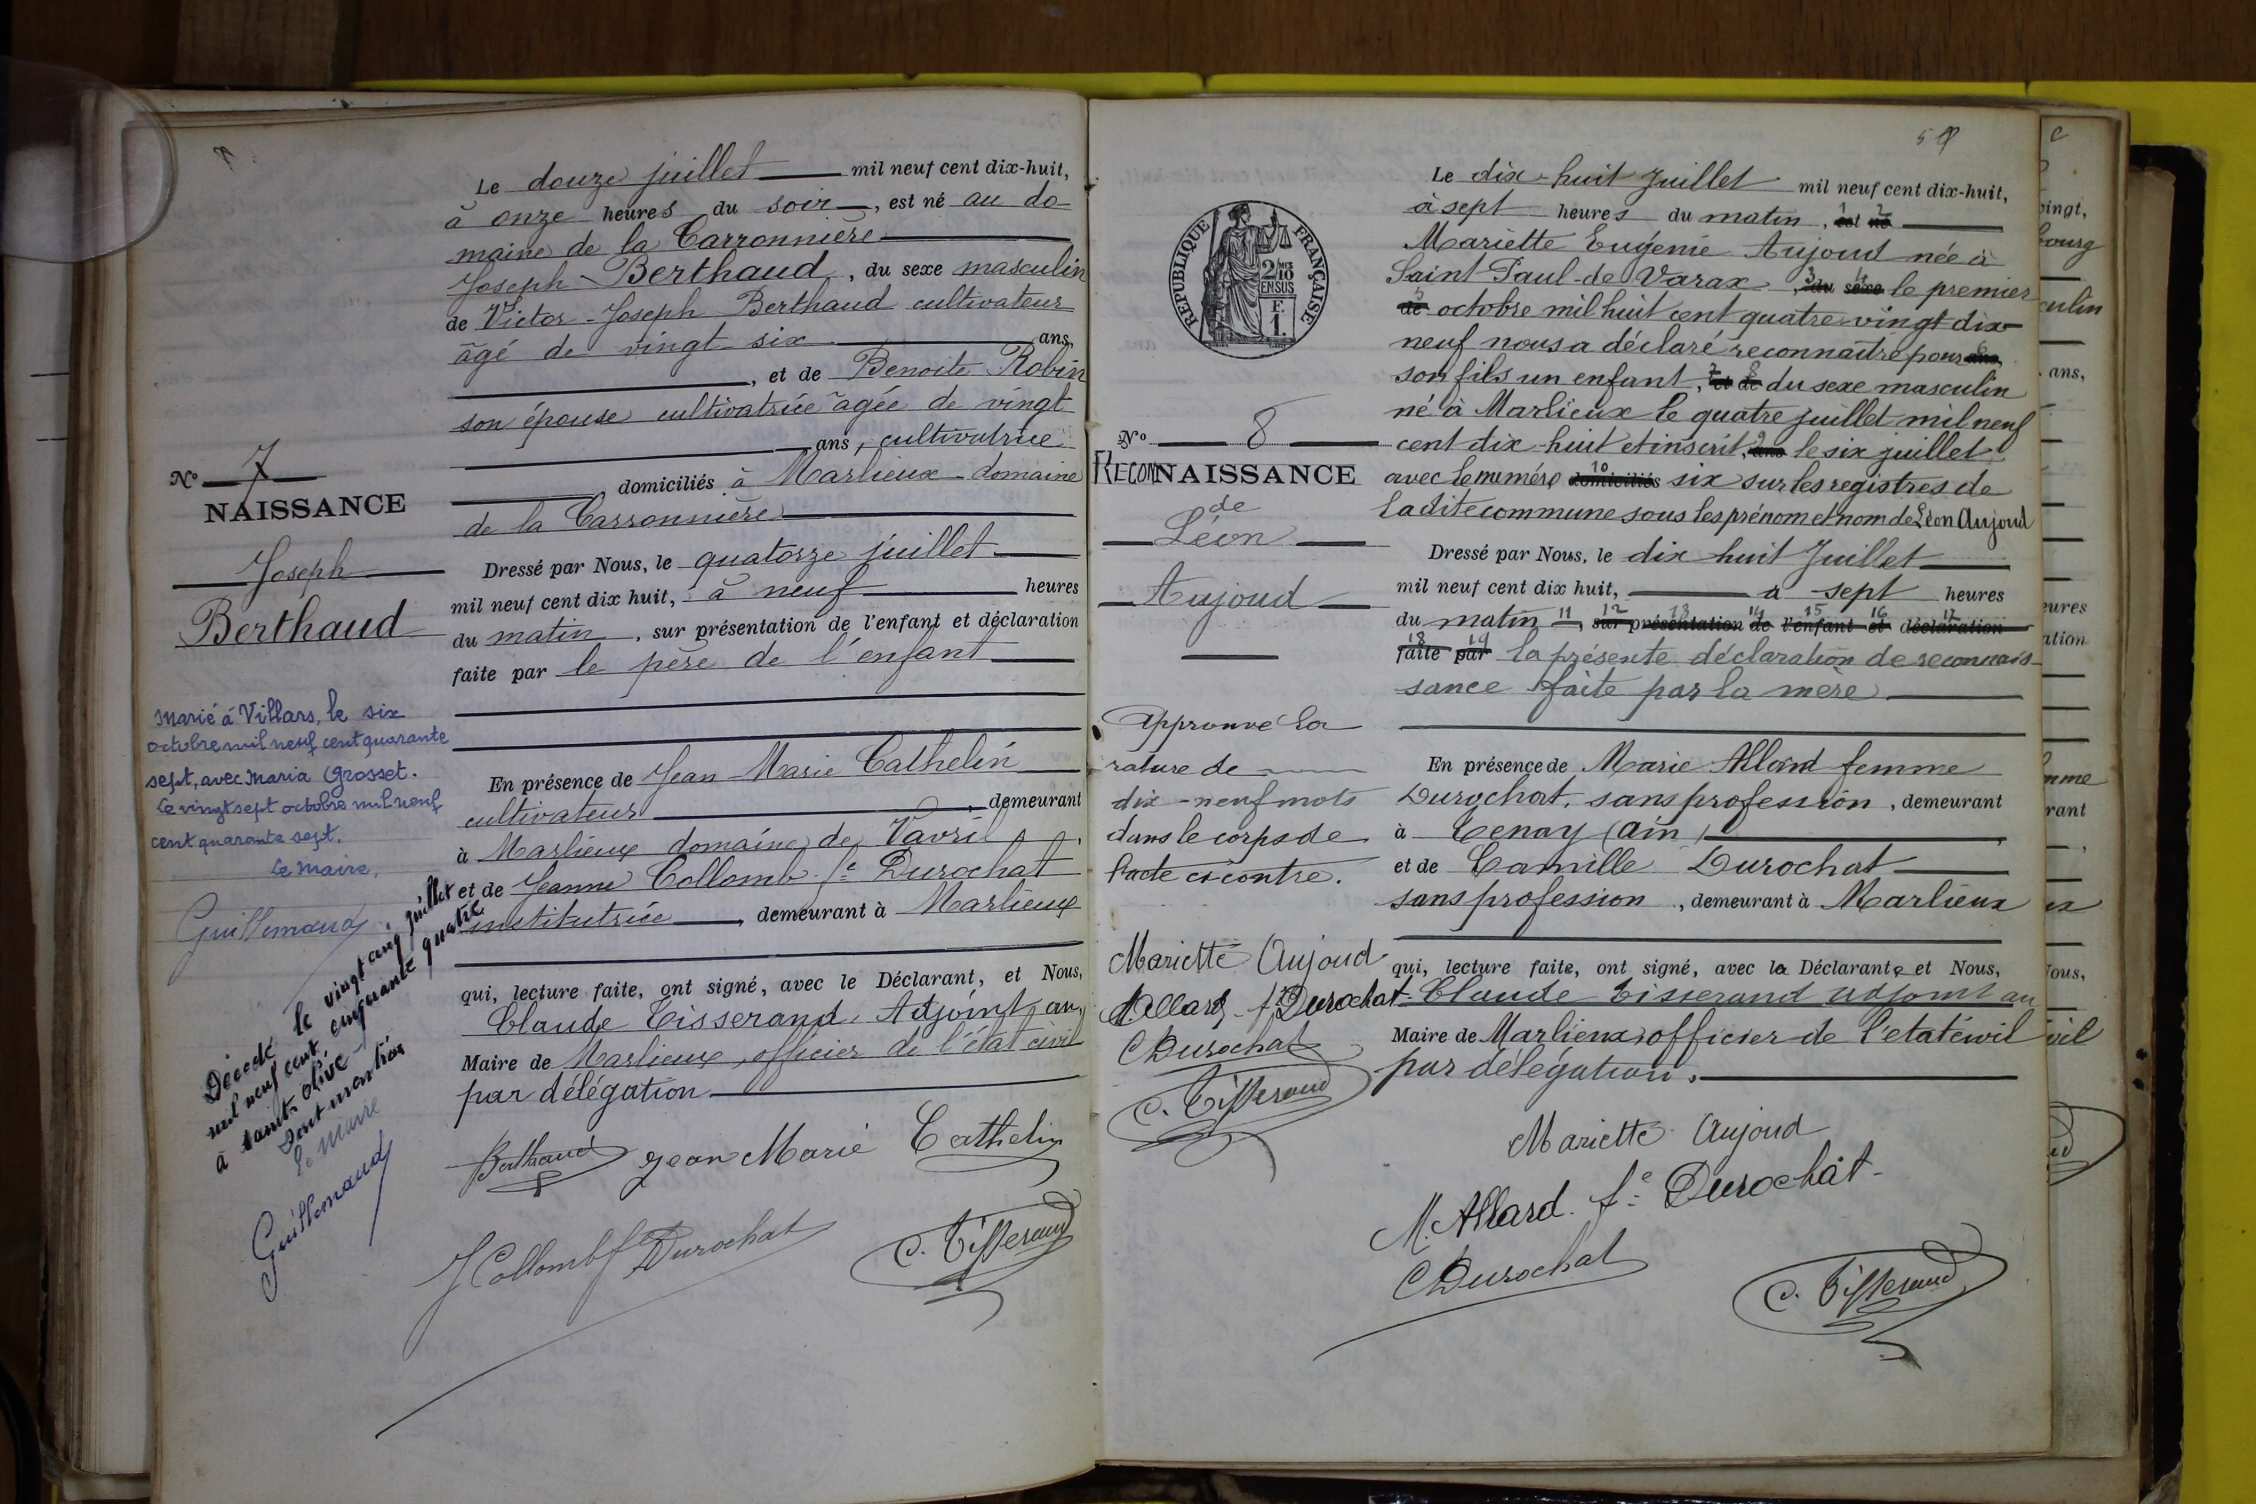 Le douze juillet mil neuf cent dix-huit,
à onze heures du soir, est né au do
maine de la Carronnière
Joseph Berthaud, du sexe masculin
de Victor-Joseph Berthaud cultivateur
âgé de vingt six ans,
, et de Benoite Robin
son épouse cultivatrice âgée de vingt
ans, cultivatrice
domiciliés à Marlieux domaine
de la Carronnière
Dressé par Nous, le quatorze juillet
mil neuf cent dix huit, à neuf heures
du matin, sur présentation de l'enfant et déclaration
faite par le père de l'enfant
En présence de Jean Marie Cathelin
cultivateur, demeurant
à Marlieux domaine de Vavril,
et de Jeanne Collomb fe Durochat
institutrice, demeurant à Marlieux
qui, lecture faite, ont signé, avec le Déclarant, et Nous,
Claude Tisserand, Adjoint au
Maire de Marlieux, officier de l'état civil
par délégation
Berthaud Jean Marie Cathelin
J Collomb f Durochat C. Tisserand
No 7
NAISSANCE
Joseph
Berthaud
Marié à Villars, le six
octobre mil neuf cent quarante
sept, avec Maria Grosset.
Le vingt sept octobre mil neuf
cent quarante sept.
Le Maire,
Guillemaud
Décédé le vingt cinq juillet
mil neuf cent cinquante quatre
à Sainte Olive
Dont mention
Le Maire
Guillemaud
REPUBLIQUE FRANÇAISE
2/10
EN SUS
F.
1.
No 8
RECONNAISSANCE
de
Léon
Aujoud
Approuvé la
rature de
dix-neuf mots
dans le corps de
l'acte ci-contre.
Mariette Aujoud
M. Allard fe Durochat
C Durochat
C. Tisserand
Le dix-huit Juillet mil neuf cent dix-huit,
à sept heures du matin, 1 est 2 né
Mariette Eugénie Aujoud née à
Saint-Paul-de-Varax, 3 du 4 sexe le premier
5 de octobre mil huit cent quatre-vingt dix
neuf nous a déclaré reconnaître pour 6 ans
son fils un enfant, 7 et 8 de du sexe masculin
né à Marlieux le quatre juillet mil neuf
cent dix-huit et inscrit, 9 ans le six juillet
avec le numéro 10 domiciliés six sur les registres de
la dite commune sous les prénom et nom de Léon Aujoud
Dressé par Nous, le dix huit Juillet
mil neuf cent dix huit, à sept heures
du matin 11, 12 sur 13 présentation 14 de 15 l'enfant 16 et 17 déclaration
18 faite 19 par la présente déclaration de reconnais-
sance faite par la mère
En présence de Marie Allard femme
Durochat, sans profession, demeurant
à Tenay (Ain),
et de Camille Durochat
sans profession, demeurant à Marlieux
qui, lecture faite, ont signé, avec la Déclarante et Nous,
Claude Tisserand adjoint au
Maire de Marlieux officier de l'etat civil
par délégation.
Mariette Aujoud
M. Allard. fe Durochat
C Durochat
C. Tisserand